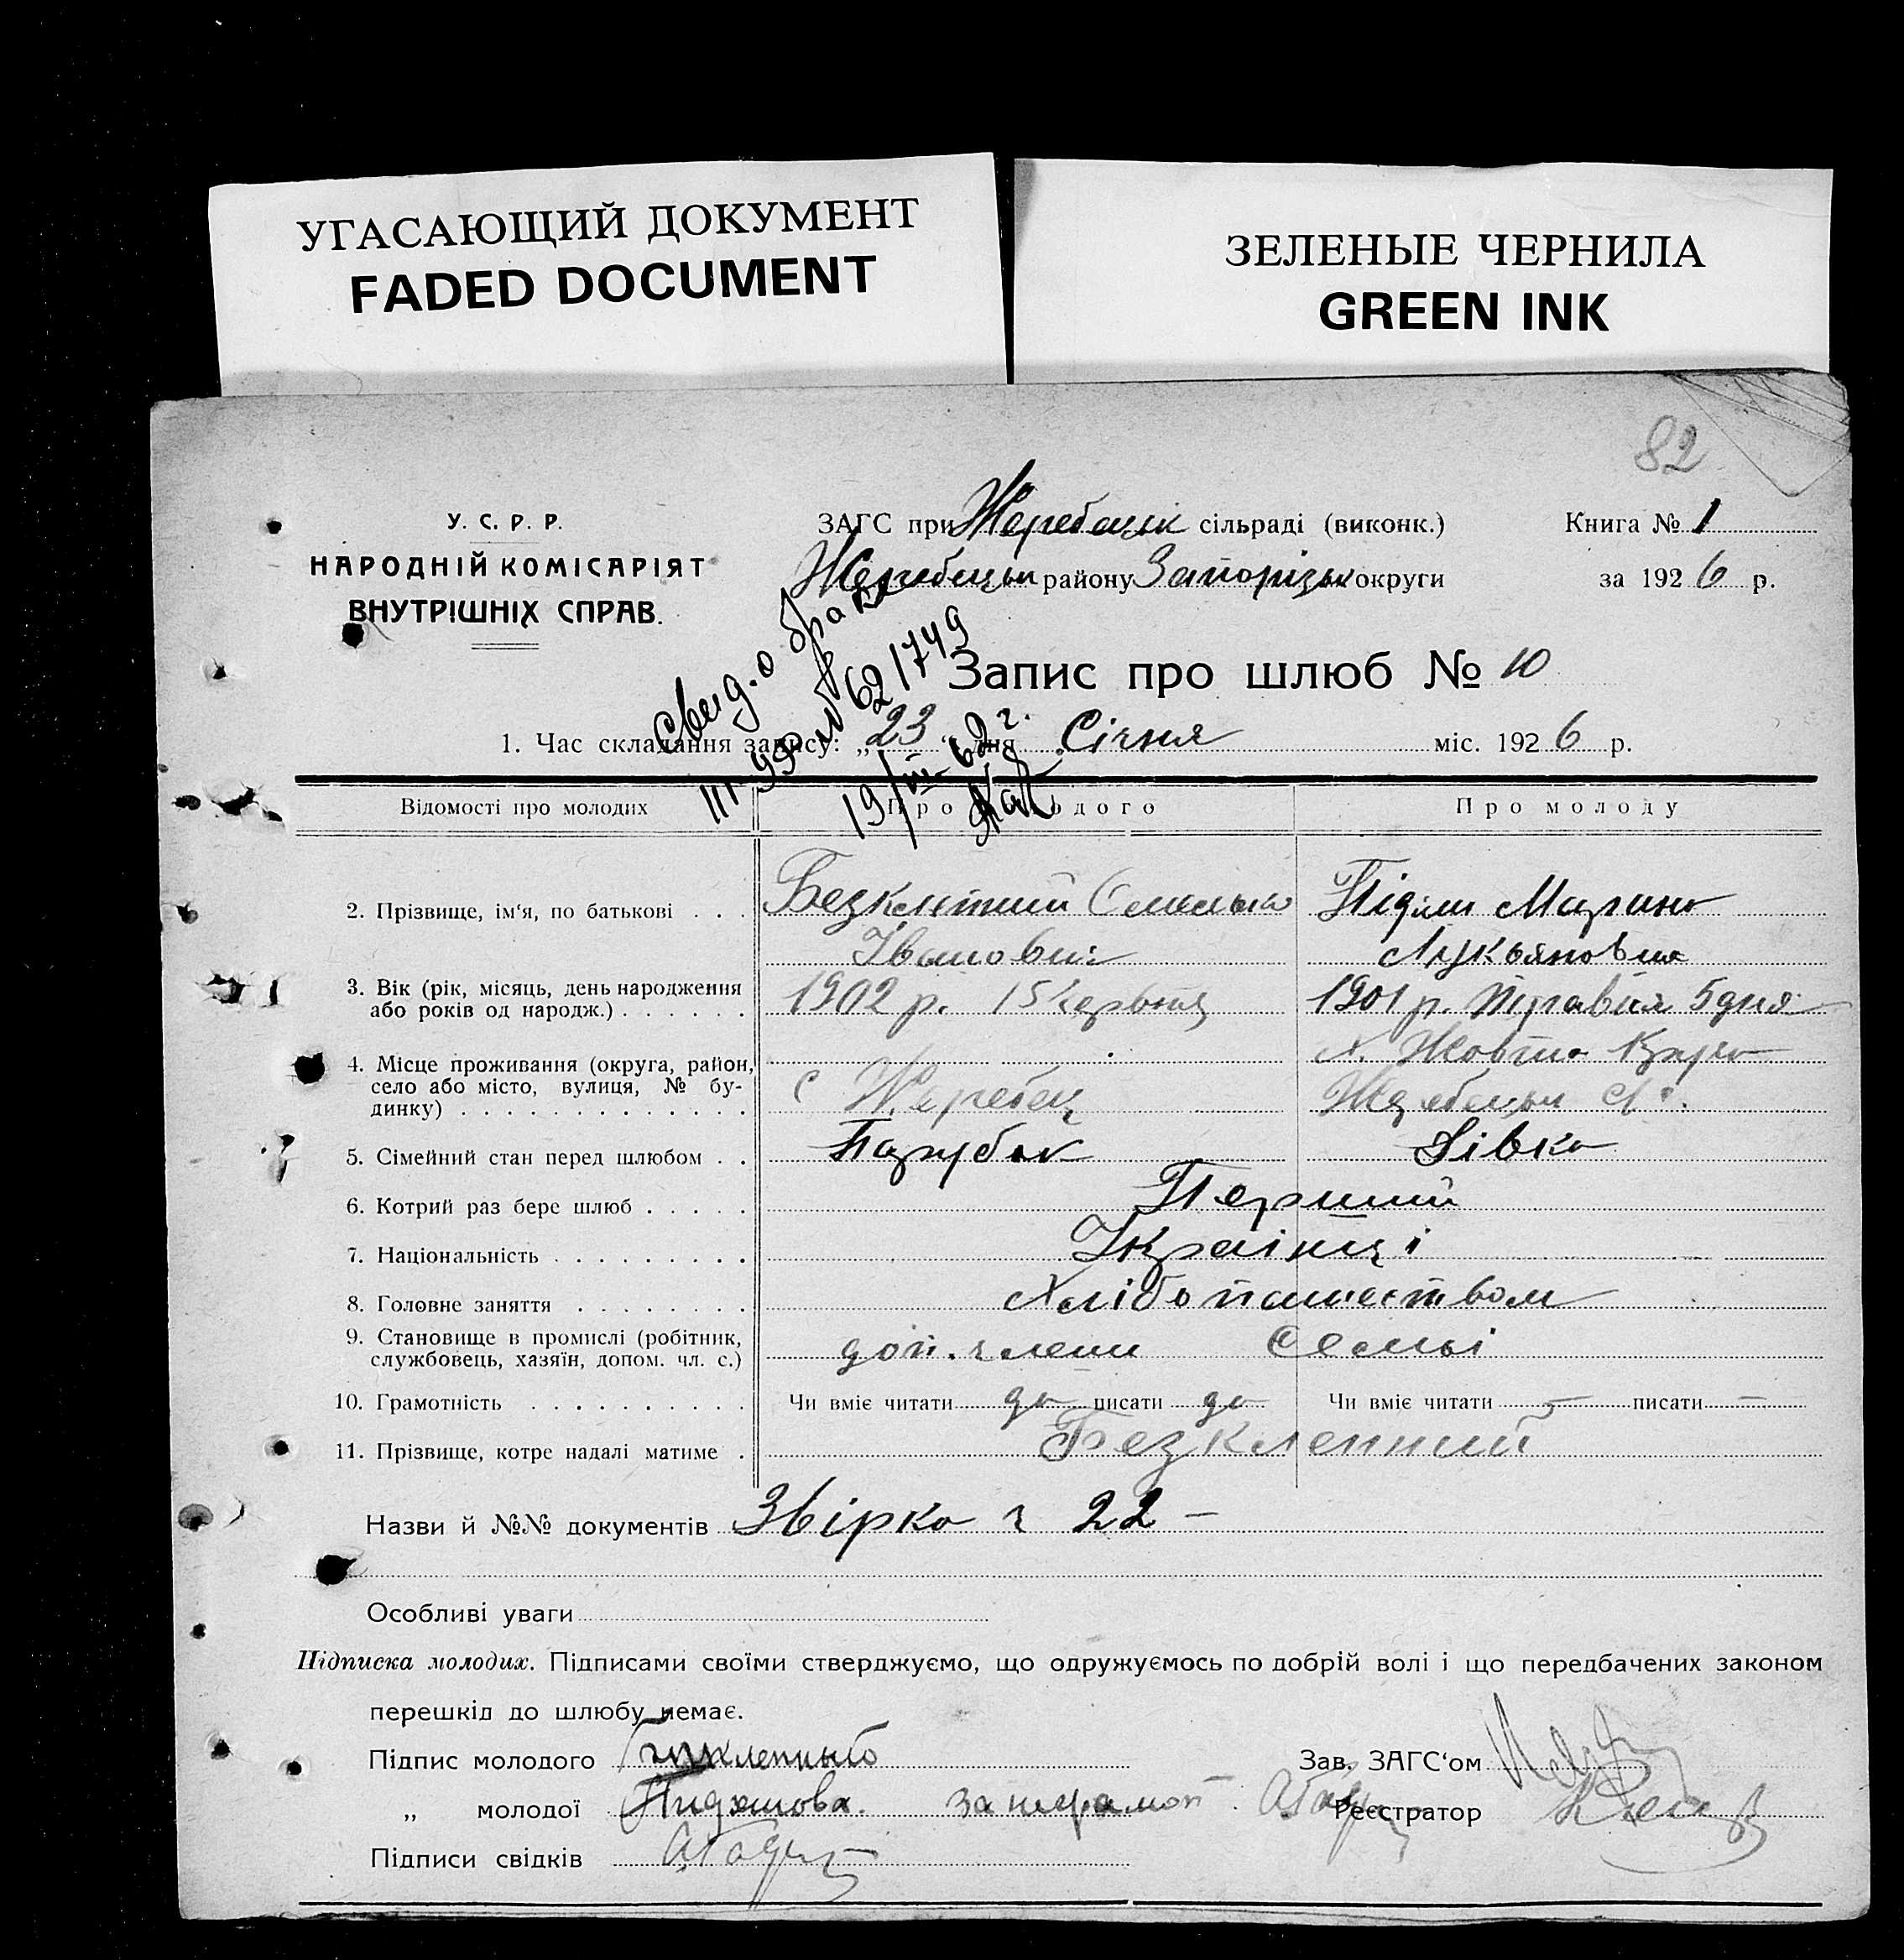 УГАСАЮЩИЙ ДОКУМЕНТ
FADED DOCUMENT
ЗЕЛЕНЫЕ ЧЕРНИЛА
GREEN INK
82
У. С. Р. Р.
НАРОДНІЙ КОМІСАРІЯТ
ВНУТРІШНІХ СПРАВ.
ЗАГС при Жеребецьк сільраді (виконк.)
Книга № 1
Жеребецьк району Запорізьк округи
за 1926 р.
Свид. о браке
№ 621749
19/III-62 г.
Запис про шлюб № 10
1. Час складання запису: „23" дня Січня міс. 1926 р.
Відомості про молодих
Про молодого
Про молоду
2. Прізвище, ім'я, по батькові
Омелько
Івановіч
Марина
Лукьяновна
3. Вік (рік, місяць, день народження
або років од народж.)
1902 р. 15 червня
1901 р. Травня 5 дня
4. Місце проживання (округа, район,
село або місто, вулиця, № бу-
динку)
с Жеребец
х. Жовта Круча
5. Сімейний стан перед шлюбом
Парубок
Дівка
6. Котрий раз бере шлюб
Перший
7. Національність
Українці
8. Головне заняття
Хлібопашеством
9. Становище в промислі (робітник,
службовець, хазяїн, допом. чл. с.)
доп. члени семьі
10. Грамотність
Чи вміє читати да писати да
Чи вміє читати – писати –
11. Прізвище, котре надалі матиме
Безкленний
Назви й №№ документів Звірка ч 22 –
Особливі уваги
Підписка молодих. Підписами своїми стверджуємо, що одружуємось по добрій волі і що передбачених законом
перешкід до шлюбу немає.
Підпис молодого
Зав. ЗАГС'ом
„ молодої
за неграмот
Реєстратор
Підписи свідків